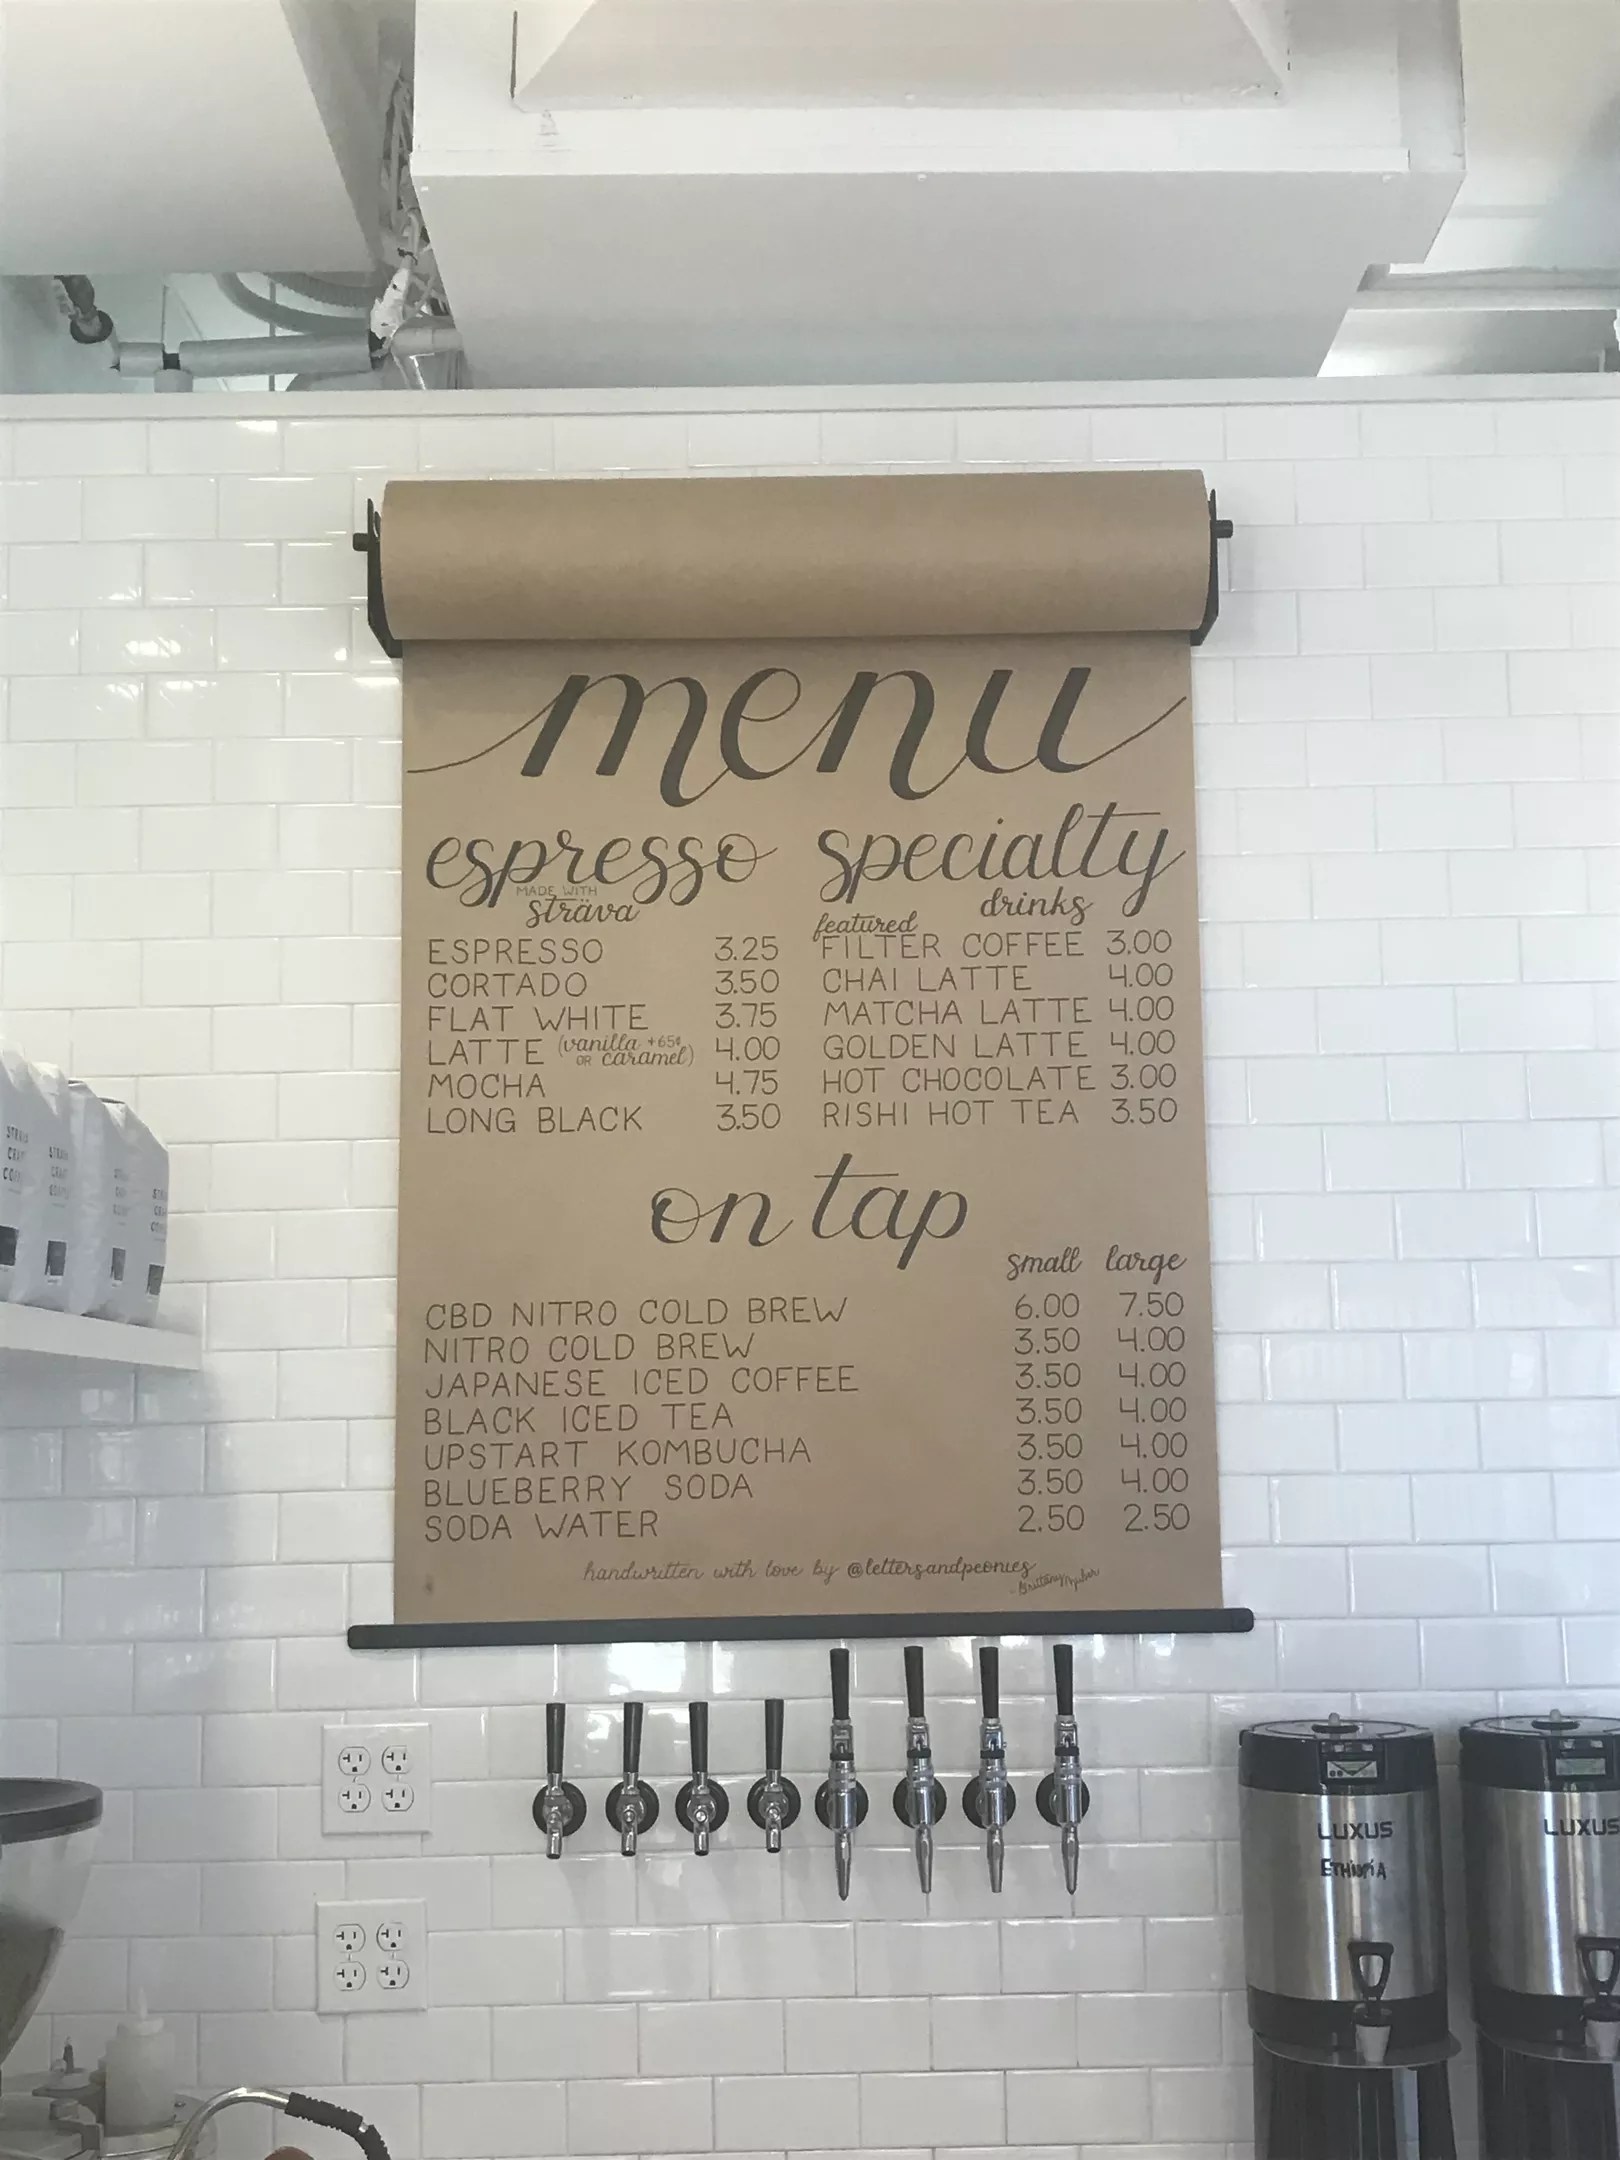 menu
espresso
MADE WITH
sträva
ESPRESSO 3.25
CORTADO 3.50
FLAT WHITE 3.75
LATTE (vanilla +65¢ OR caramel) 4.00
MOCHA 4.75
LONG BLACK 3.50
specialty
drinks
featured
FILTER COFFEE 3.00
CHAI LATTE 4.00
MATCHA LATTE 4.00
GOLDEN LATTE 4.00
HOT CHOCOLATE 3.00
RISHI HOT TEA 3.50
on tap
small large
CBD NITRO COLD BREW 6.00 7.50
NITRO COLD BREW 3.50 4.00
JAPANESE ICED COFFEE 3.50 4.00
BLACK ICED TEA 3.50 4.00
UPSTART KOMBUCHA 3.50 4.00
BLUEBERRY SODA 3.50 4.00
SODA WATER 2.50 2.50
handwritten with love by @lettersandpeonies
Brittany
LUXUS
ETHIOPIA
LUXUS